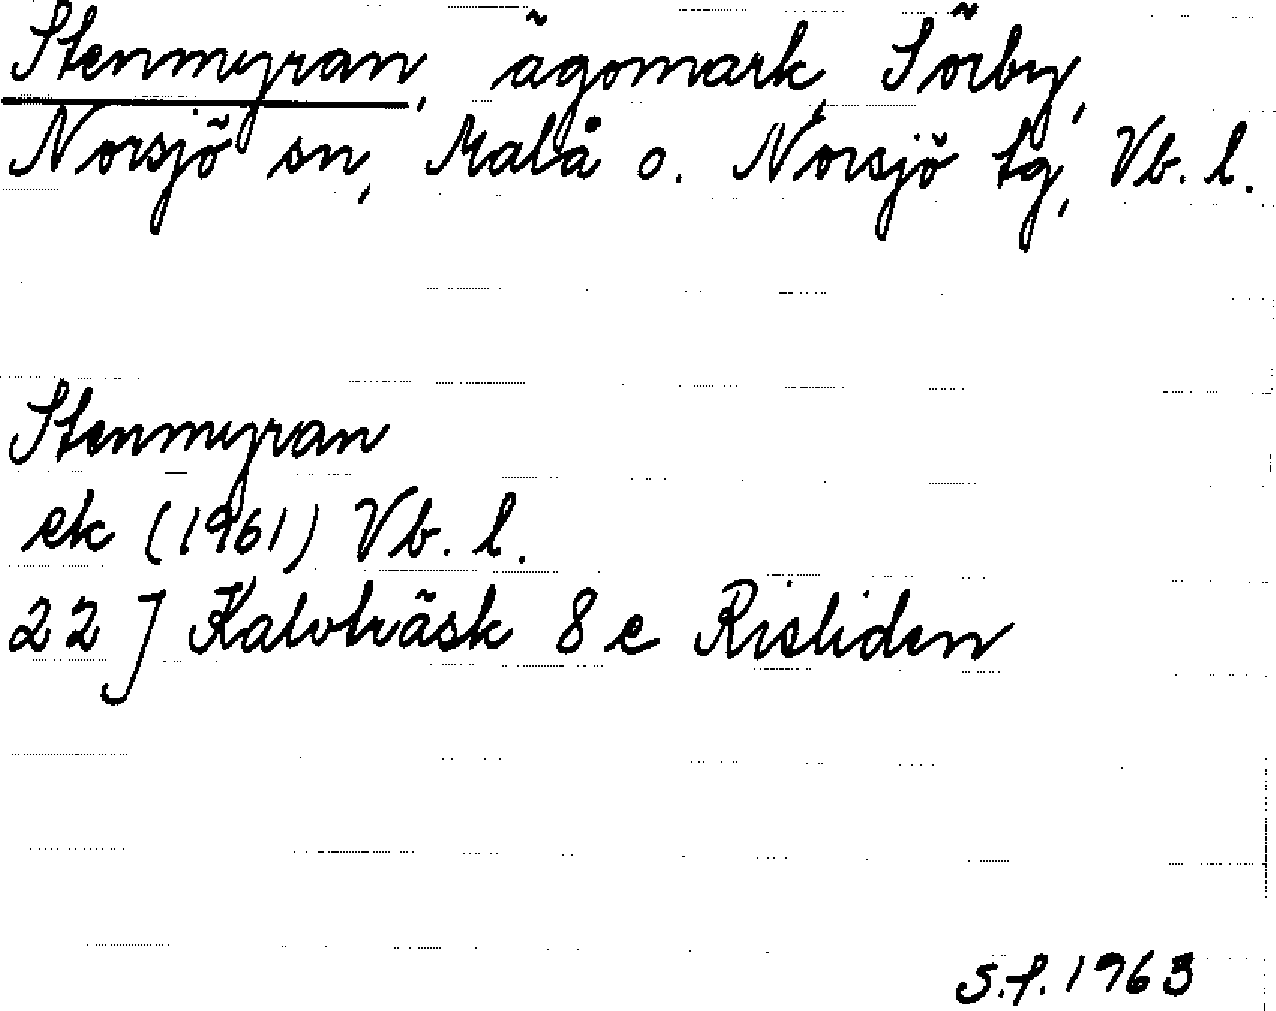 Stenmyran, ägomark, Sörby,
Norsjö sn, Malå o. Norsjö tg, Vb. l.
Stenmyran
ek (1961) Vb. l.
22 J Kalvträsk 8 e Risliden
S.f. 1963